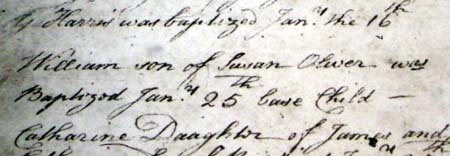 Harris was baptized Jan.y the 16th
William son of Susan Oliver was
Baptized Jan.y 25th base Child –
Catharine Daaghter of James and